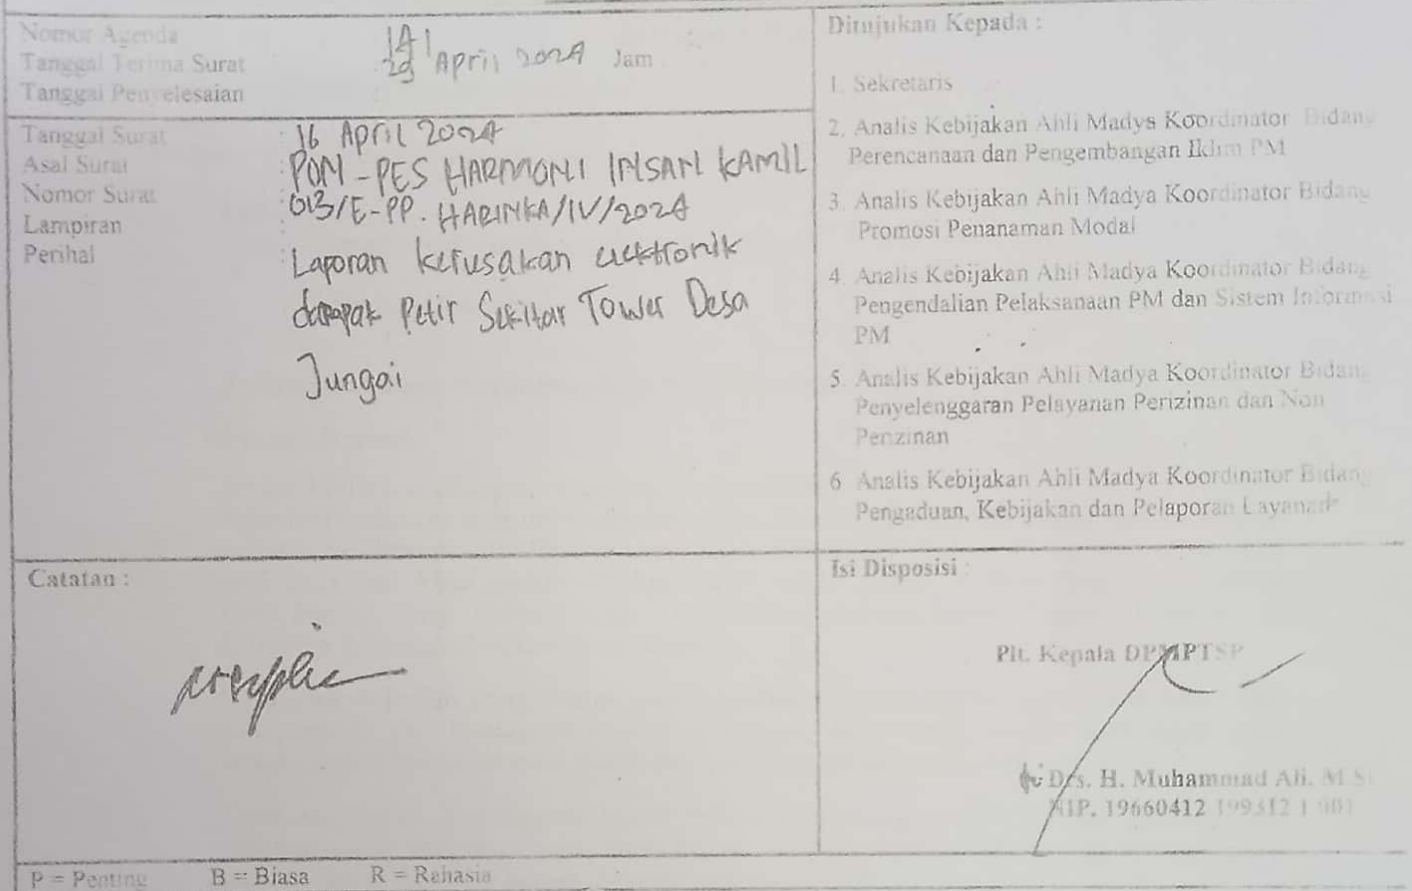 Nomor Agenda : 141
Tanggal Terima Surat : 29 April 2024 Jam
Tanggal Penyelesaian :
Tanggal Surat : 16 April 2024
Asal Surat : PON-PES HARMONI INSAN KAMIL
Nomor Surat : 013/E-PP. HARINKA/IV/2024
Lampiran :
Perihal : Laporan kerusakan elektronik
dampak Petir Sekitar Tower Desa
Jungai
Ditujukan Kepada :
1. Sekretaris
2. Analis Kebijakan Ahli Madya Koordinator Bidang
Perencanaan dan Pengembangan Iklim PM
3. Analis Kebijakan Ahli Madya Koordinator Bidang
Promosi Penanaman Modal
4. Analis Kebijakan Ahli Madya Koordinator Bidang
Pengendalian Pelaksanaan PM dan Sistem Informasi
PM
5. Analis Kebijakan Ahli Madya Koordinator Bidang
Penyelenggaran Pelayanan Perizinan dan Non
Perizinan
6. Analis Kebijakan Ahli Madya Koordinator Bidang
Pengaduan, Kebijakan dan Pelaporan Layanan
Catatan :
Isi Disposisi :
Plt. Kepala DPMPTSP
Drs. H. Muhammad Ali. M.Si
NIP. 19660412 199312 1 001
P = Penting B = Biasa R = Rahasia